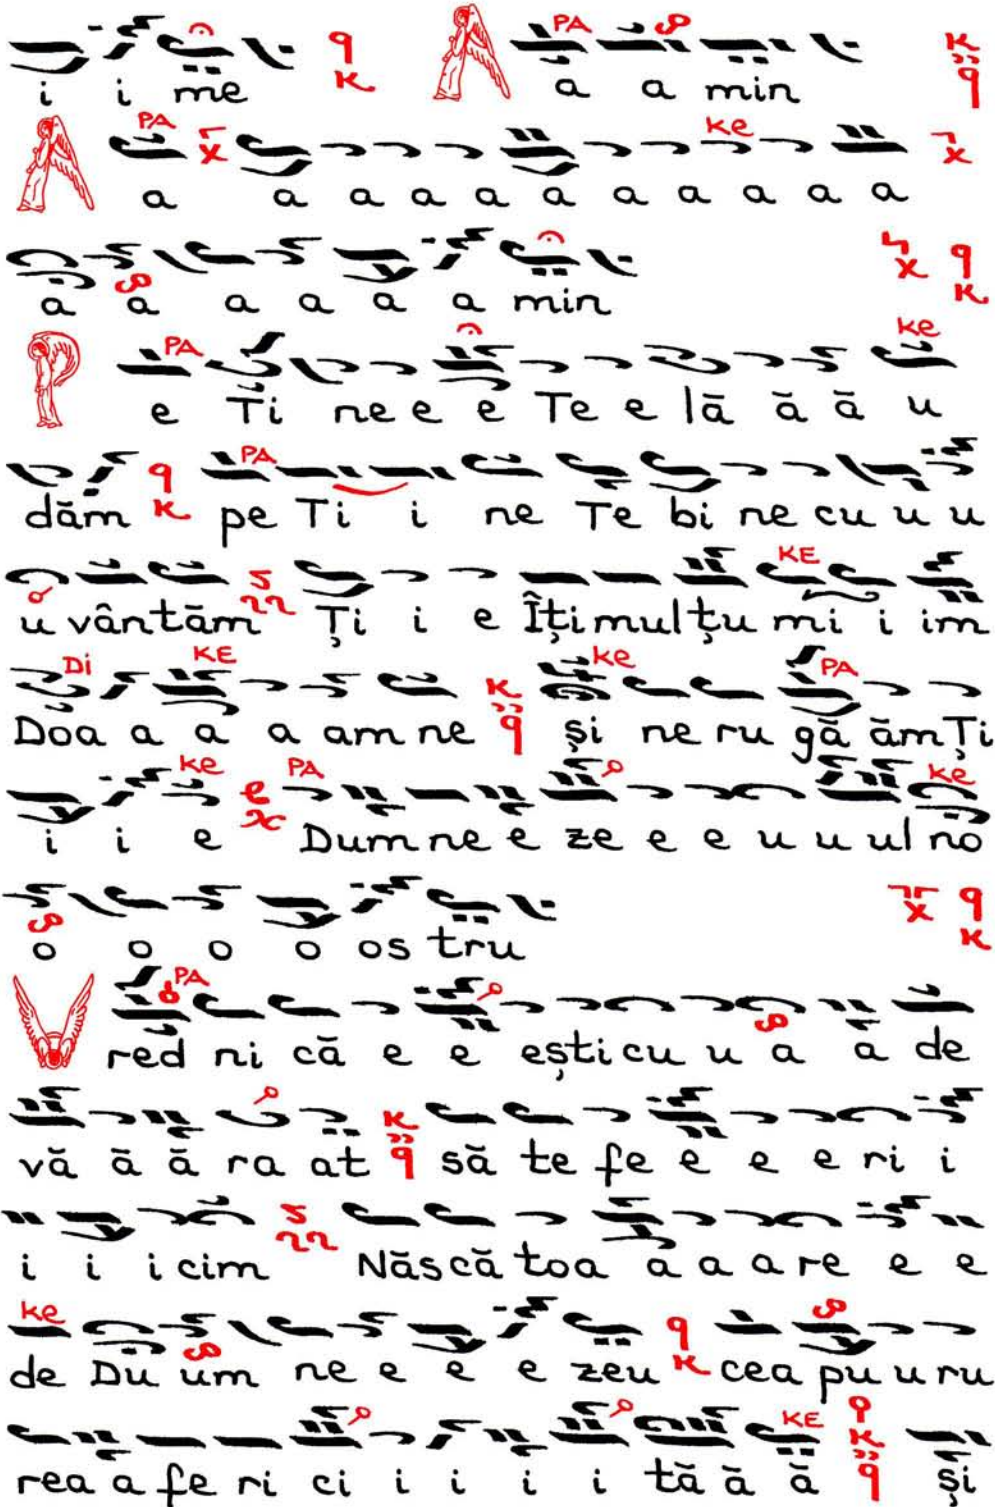 i i me A a a min
A a a a a a a a a a a a
a a a a a a min
P e Ti ne e e Te e lă ă ă u
dăm pe Ti i ne Te bi ne cu u u
u vântăm Ți i e Îți mulțu mi i im
Doa a a a am ne și ne ru gă ăm Ți
i i e Dum ne e ze e e u u ul no
o o o o os tru
V red ni că e e ești cu u a a de
vă ă ă ra at să te fe e e e ri i
i i i cim Născă toa a a a re e e
de Du um ne e e e zeu cea pu u ru
rea a fe ri ci i i i i tă ă ă și